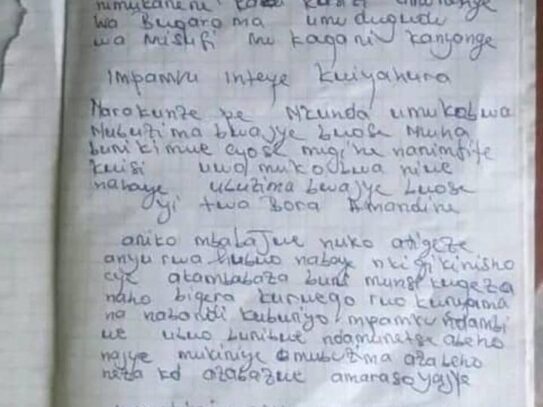 wo Bugarama umudugudu
wa Misufi mu kagari kanyonge
Impamvu inteye kwiyahura
Narakunze pe Nkunda umukobwa
Mubuzima bwajye bwose Muha
buri kimwe cyose mugire nanimfite
kwisi uwo mukobwa niwe
nabaye ubuzima bwajye bwose
yitwa Bora Amandine
ariko mbabajwe nuko atigeze
anyurwa hubwo nabaye nkigikinisho
cye akambabaza buri munsi kugeza
naho bigera kurwego rwo kuryama
na nabandi kuburiyo impamvu
ubuo ndamuretse abeho
najye mukiniye ubuzima azabeho
neza ko azabazwe amaraso yajye